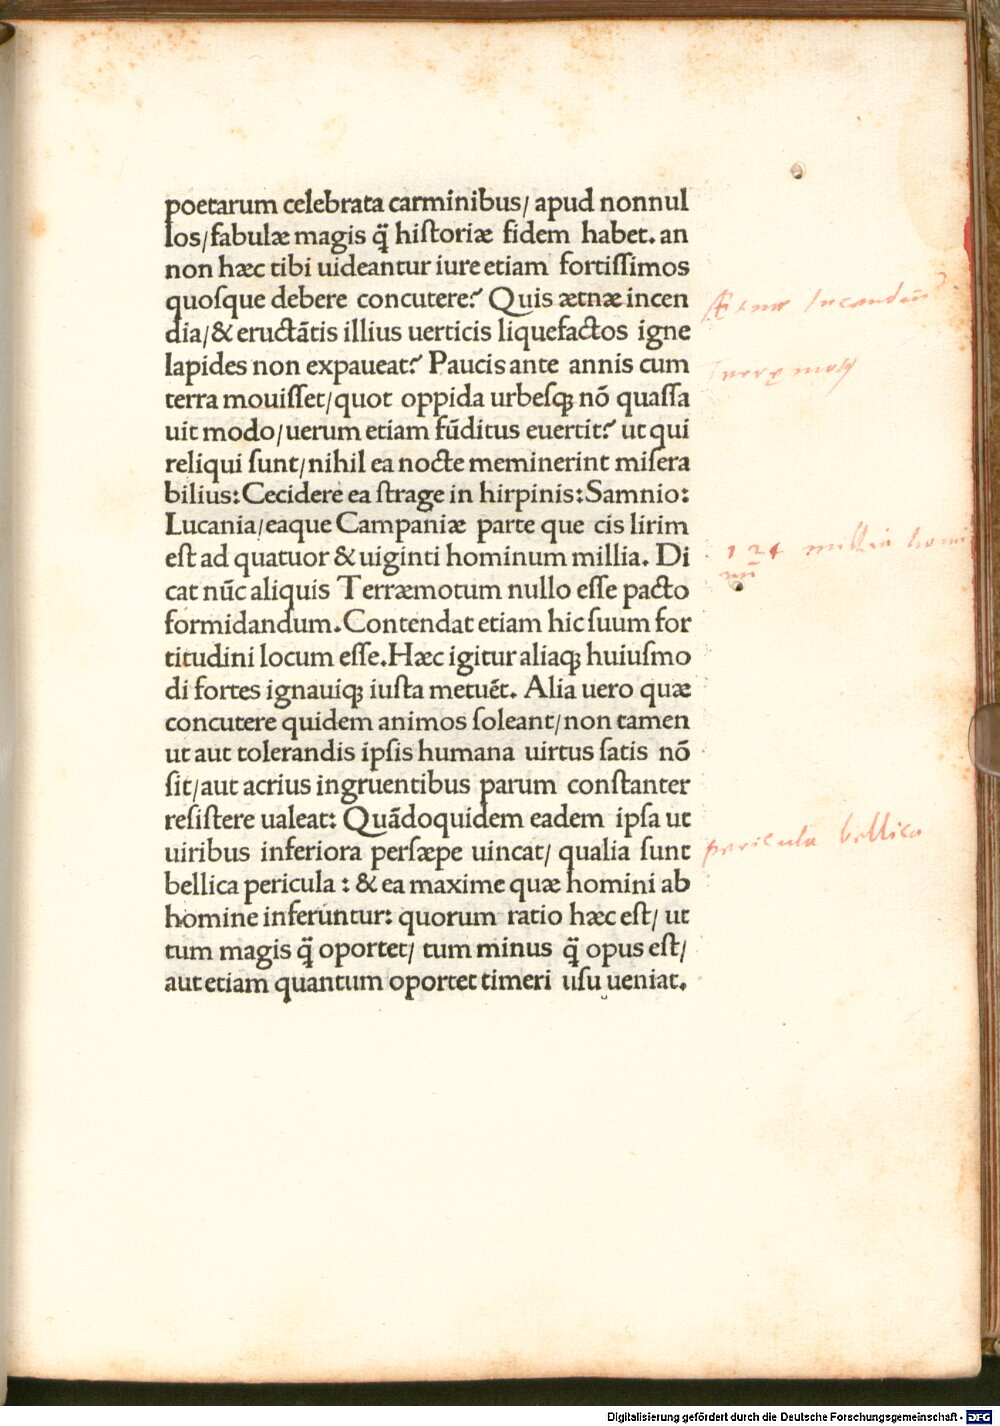 poetarum celebrata carminibus/ apud nonnul
los/fabulæ magis q̃ hiſtoriæ fidem habet. an
non hæc tibi uideantur iure etiam fortiſſimos
quoſque debere concutere? Quis ætnæ incen
dia/& eructãtis illius uerticis liquefactos igne
lapides non expaueat? Paucis ante annis cum
terra mouiſſet/quot oppida urbeſqꝫ nõ quaſſa
uit modo/uerum etiam fũditus euertit? ut qui
reliqui ſunt/nihil ea nocte meminerint miſera
bilius: Cecidere ea ſtrage in hirpinis: Samnio:
Lucania/eaque Campaniæ parte que cis lirim
eſt ad quatuor & uiginti hominum millia. Di
cat nũc aliquis Terræmotum nullo eſſe pacto
formidandum. Contendat etiam hic ſuum for
titudini locum eſſe. Hæc igitur aliaqꝫ huiuſmo
di fortes ignauiqꝫ iuſta metuẽt. Alia uero quæ
concutere quidem animos ſoleant/non tamen
ut aut tolerandis ipſis humana uirtus ſatis nõ
ſit/aut acrius ingruentibus parum conſtanter
reſiſtere ualeat: Quãdoquidem eadem ipſa ut
uiribus inferiora perſæpe uincat/ qualia ſunt
bellica pericula : & ea maxime quæ homini ab
homine inferuntur: quorum ratio hæc eſt/ ut
tum magis q̃ oportet/ tum minus q̃ opus eſt/
aut etiam quantum oportet timeri uſu ueniat.
Ætnæ Incendiũ
124 millia homi
nũ
pericula bellica
Digitalisierung gefördert durch die Deutsche Forschungsgemeinschaft - DFG